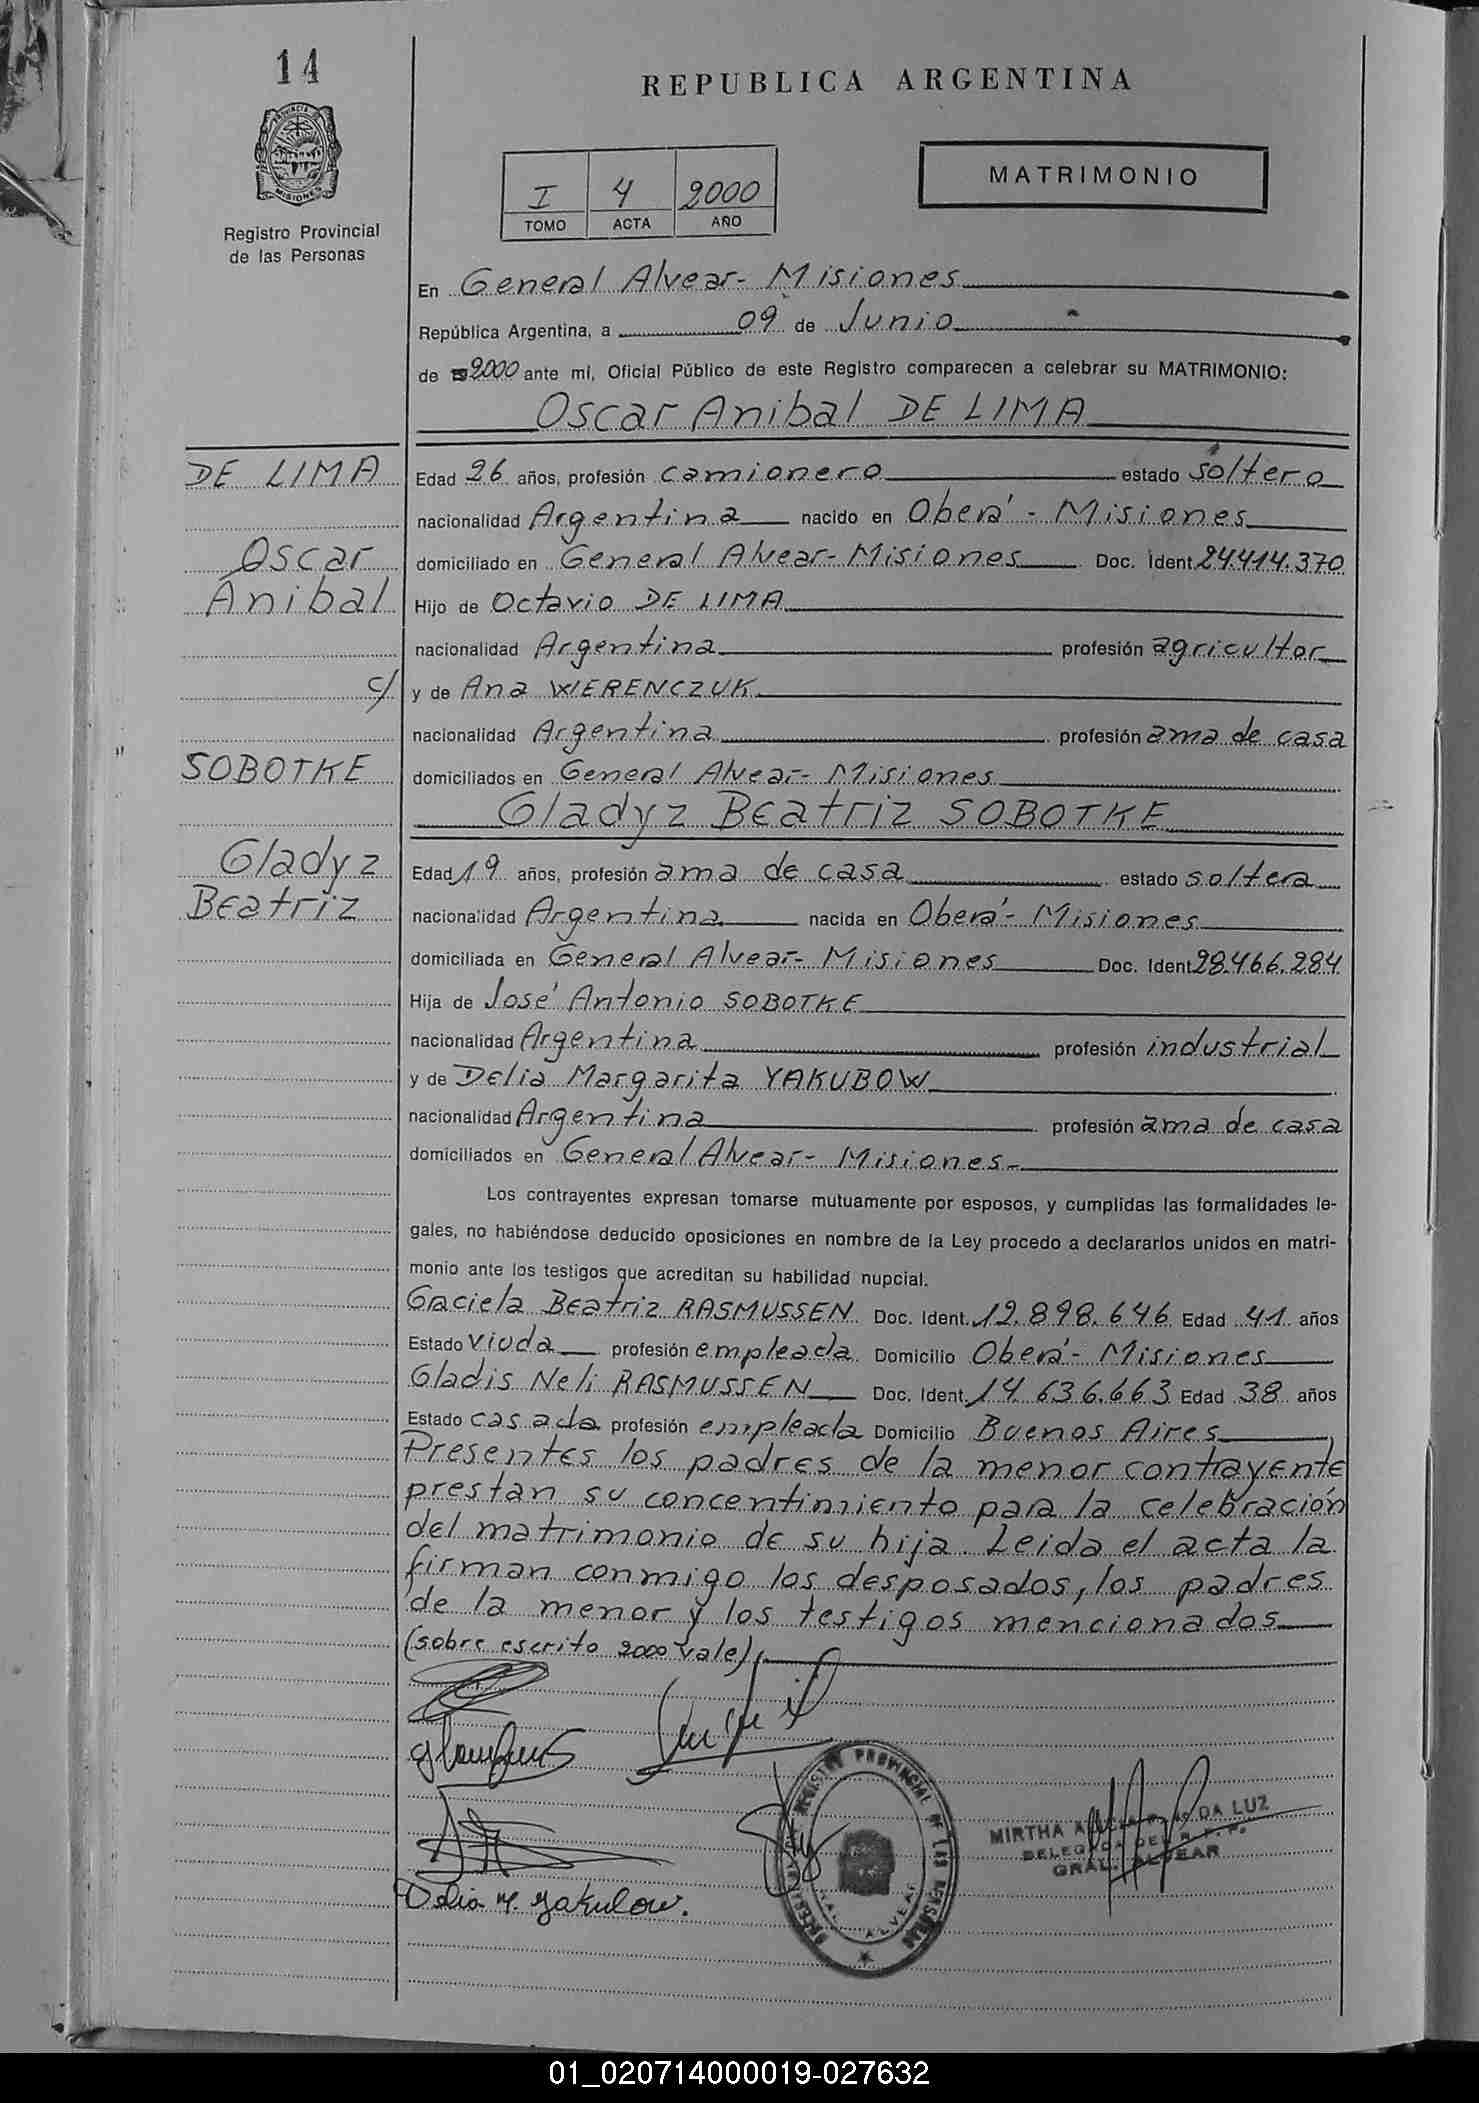 14
REPUBLICA ARGENTINA
PROVINCIA DE
MISIONES
Registro Provincial
de las Personas
I 4 2000
TOMO ACTA AÑO
MATRIMONIO
En General Alvear- Misiones
República Argentina, a 09 de Junio
de 2000 ante mí, Oficial Público de este Registro comparecen a celebrar su MATRIMONIO:
Oscar Anibal DE LIMA
DE LIMA
Oscar
Anibal
c/
SOBOTKE
Gladyz
Beatriz
Edad 26 años, profesión camionero estado soltero
nacionalidad Argentina nacido en Oberá - Misiones
domiciliado en General Alvear- Misiones Doc. Ident. 24.414.370
Hijo de Octavio DE LIMA
nacionalidad Argentina profesión agricultor
y de Ana WIERENCZUK
nacionalidad Argentina profesión ama de casa
domiciliados en General Alvear- Misiones
Gladyz Beatriz SOBOTKE
Edad 19 años, profesión ama de casa estado soltera
nacionalidad Argentina nacida en Oberá- Misiones
domiciliada en General Alvear- Misiones Doc. Ident. 28.466.284
Hija de José Antonio SOBOTKE
nacionalidad Argentina profesión industrial
y de Delia Margarita YAKUBOW
nacionalidad Argentina profesión ama de casa
domiciliados en General Alvear- Misiones-
Los contrayentes expresan tomarse mutuamente por esposos, y cumplidas las formalidades le-
gales, no habiéndose deducido oposiciones en nombre de la Ley procedo a declararlos unidos en matri-
monio ante los testigos que acreditan su habilidad nupcial.
Graciela Beatriz RASMUSSEN Doc. Ident. 12.898.646 Edad 41 años
Estado viuda profesión empleada Domicilio Oberá- Misiones
Gladis Neli RASMUSSEN Doc. Ident. 14.636.663 Edad 38 años
Estado casada profesión empleada Domicilio Buenos Aires
Presentes los padres de la menor contrayente
prestan su concentimiento para la celebración
del matrimonio de su hija. Leida el acta la
firman conmigo los desposados, los padres
de la menor y los testigos mencionados
(sobre escrito 2000 vale)
REGISTRO PROVINCIAL DE LAS PERSONAS
GRAL. ALVEAR
MIRTHA DA LUZ
DELEGADA DEL R.P.P.
GRAL. ALVEAR
Delia M. Yakubow.
01_020714000019-027632